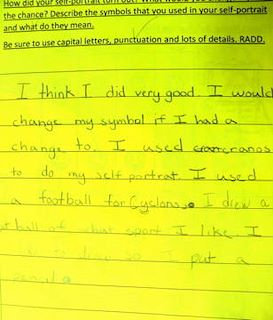 How did your self-portrait turn out? What would you
the chance? Describe the symbols that you used in your self-portrait
and what do they mean.
Be sure to use capital letters, punctuation and lots of details. RADD.
I think I did very good. I would
change my symbol if I had a
change to. I used
to do my self portrat. I used
a football for Cyclons. I drew a
ball of what sport I like. I
to draw so I put a
pencil.